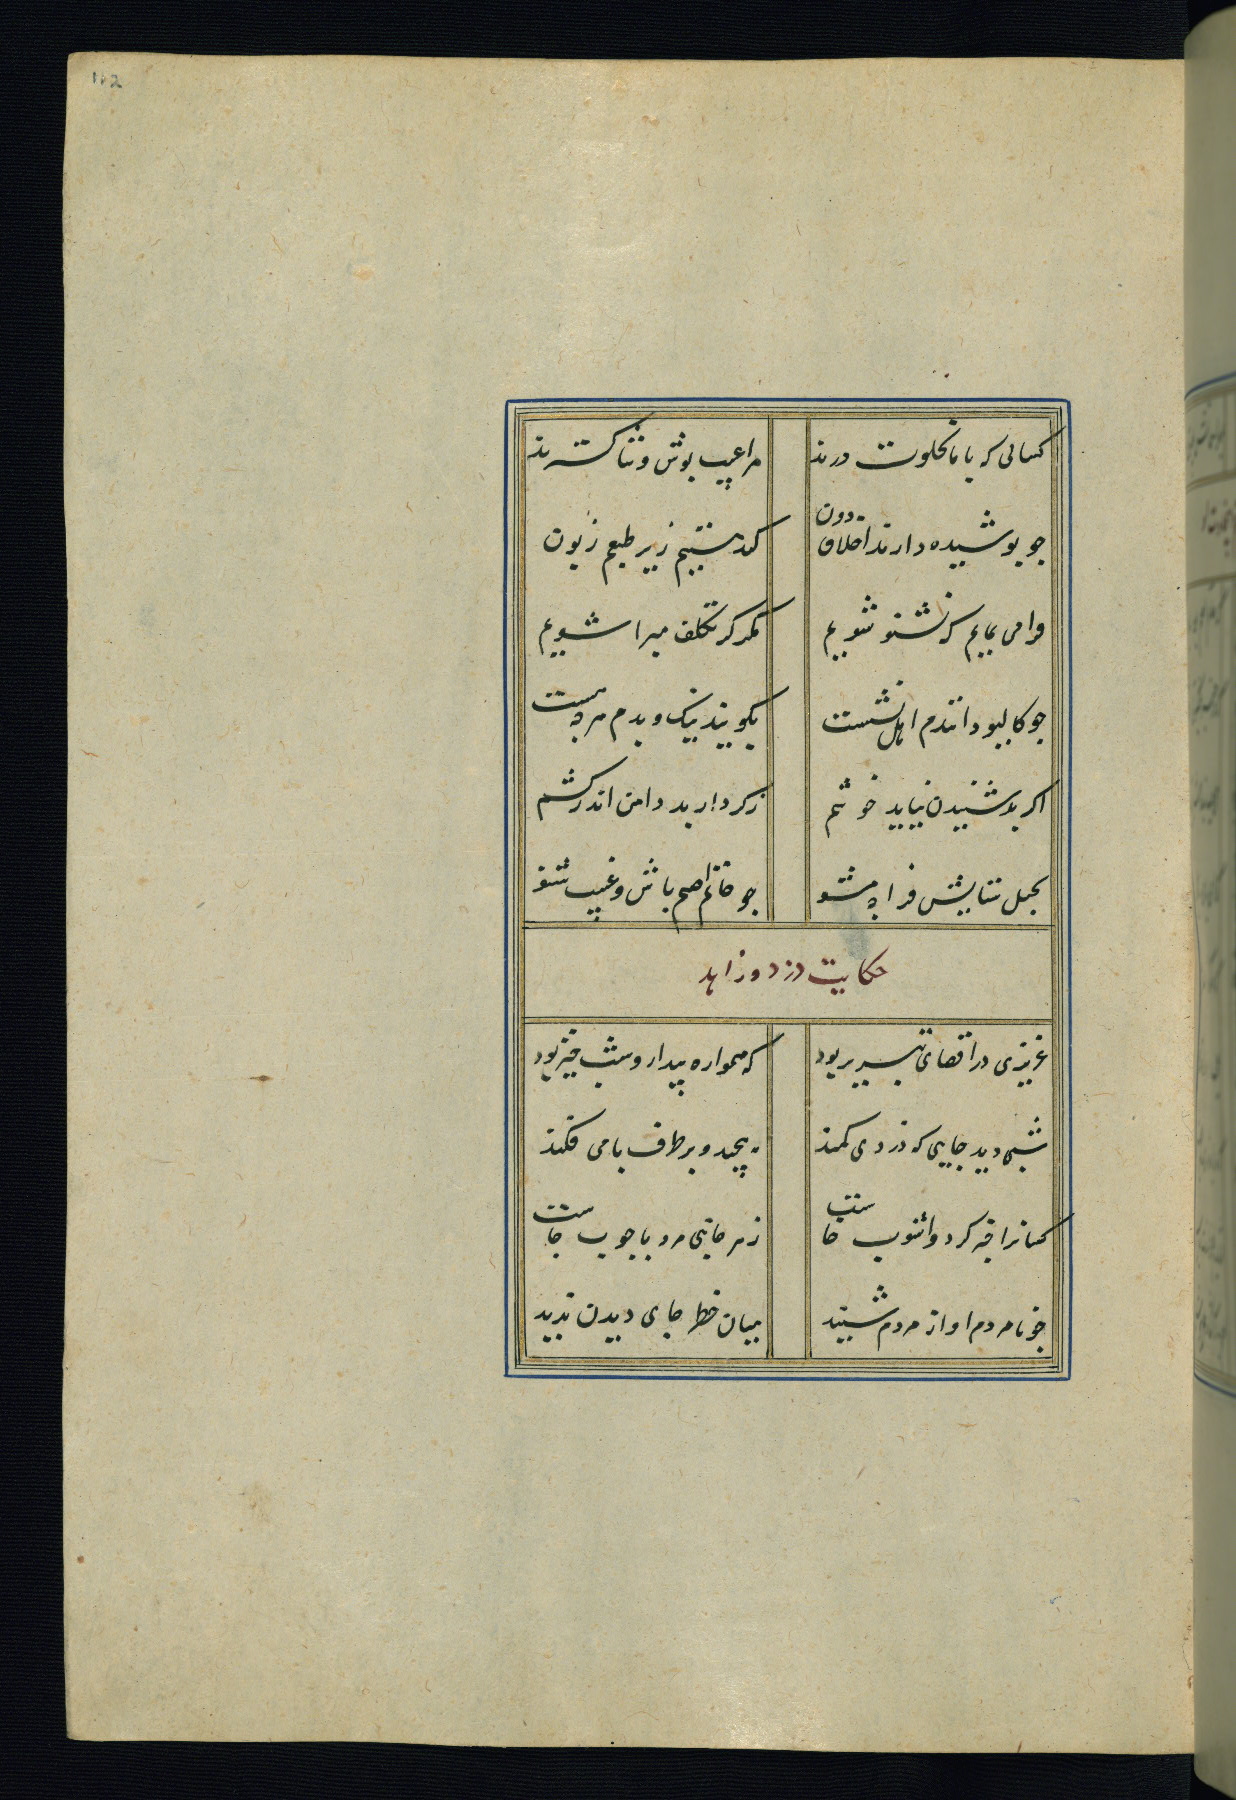 112
کسانی که با ما بخلوت درند مرا عیب پوش و ثنا گسترند
جو پوشیده دارند اخلاق دون کند هستیم زیر طبع زبون
فرا می نمایم که نشنوم مکر کز تکلف مبرا شویم
جو کالیو دانندم اهل نشست بگویند نیک و بدم هرچه هست
اگر بد شنیدن نیاید خوشم ز کردار بد دامن اندر کشم
بحبل ستایش فرا چه مشو جو حاتم اصم باش و عیب شنو
حکایت دزد و زاهد
عزیزی در اقصای تبریز بود که همواره بیدار و شب خیز بود
شبی دید جایی که دزدی کمند بپیچید و بر طرف بامی فکند
کسانرا خبر کرد و آشوب خاست ز هر جانبی مرد با چوب خاست
جو نامردم آواز مردم شنید میان خطر جای دیدن ندید